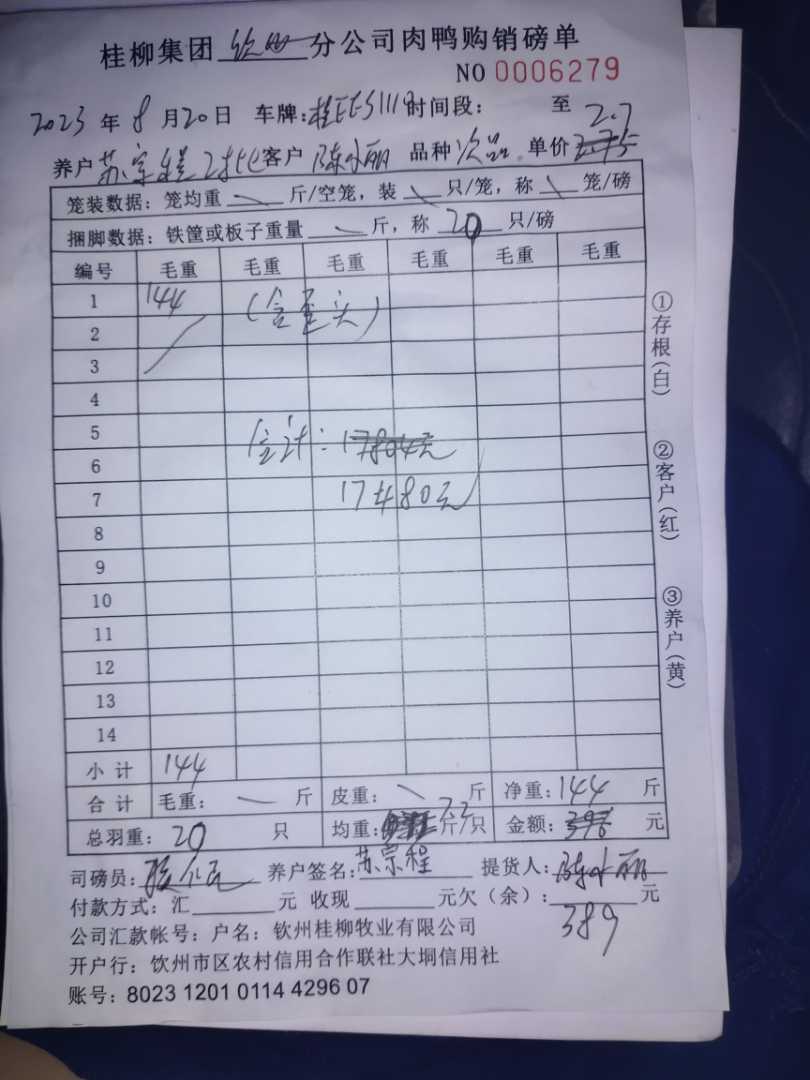 桂柳集团 钦州 分公司肉鸭购销磅单
NO 0006279
2023 年 8 月 20 日 车牌: 时间段: 至
2.7
养户 苏宗程 客户 陈小丽 品种 次品 单价 2.75
笼装数据: 笼均重 \ 斤/空笼, 装 \ 只/笼, 称 \ 笼/磅
捆脚数据: 铁筐或板子重量 \ 斤, 称 20 只/磅
编号 毛重 毛重 毛重 毛重 毛重 毛重
1 144 (含歪头)
2
3
4
5
合计: 17804元
6
7 17480元
8
9
10
11
12
13
14
小计 144
合计 毛重: \ 斤 皮重: \ 斤 净重: 144 斤
总羽重: 20 只 均重: 7.2 斤/只 金额: 396 元
司磅员: 养户签名: 苏宗程 提货人: 陈小丽
付款方式: 汇 元 收现 元欠(余): 元
389
公司汇款帐号: 户名: 钦州桂柳牧业有限公司
开户行: 饮州市区农村信用合作联社大垌信用社
账号: 8023 1201 0114 4296 07
①存根(白)
②客户(红)
③养户(黄)